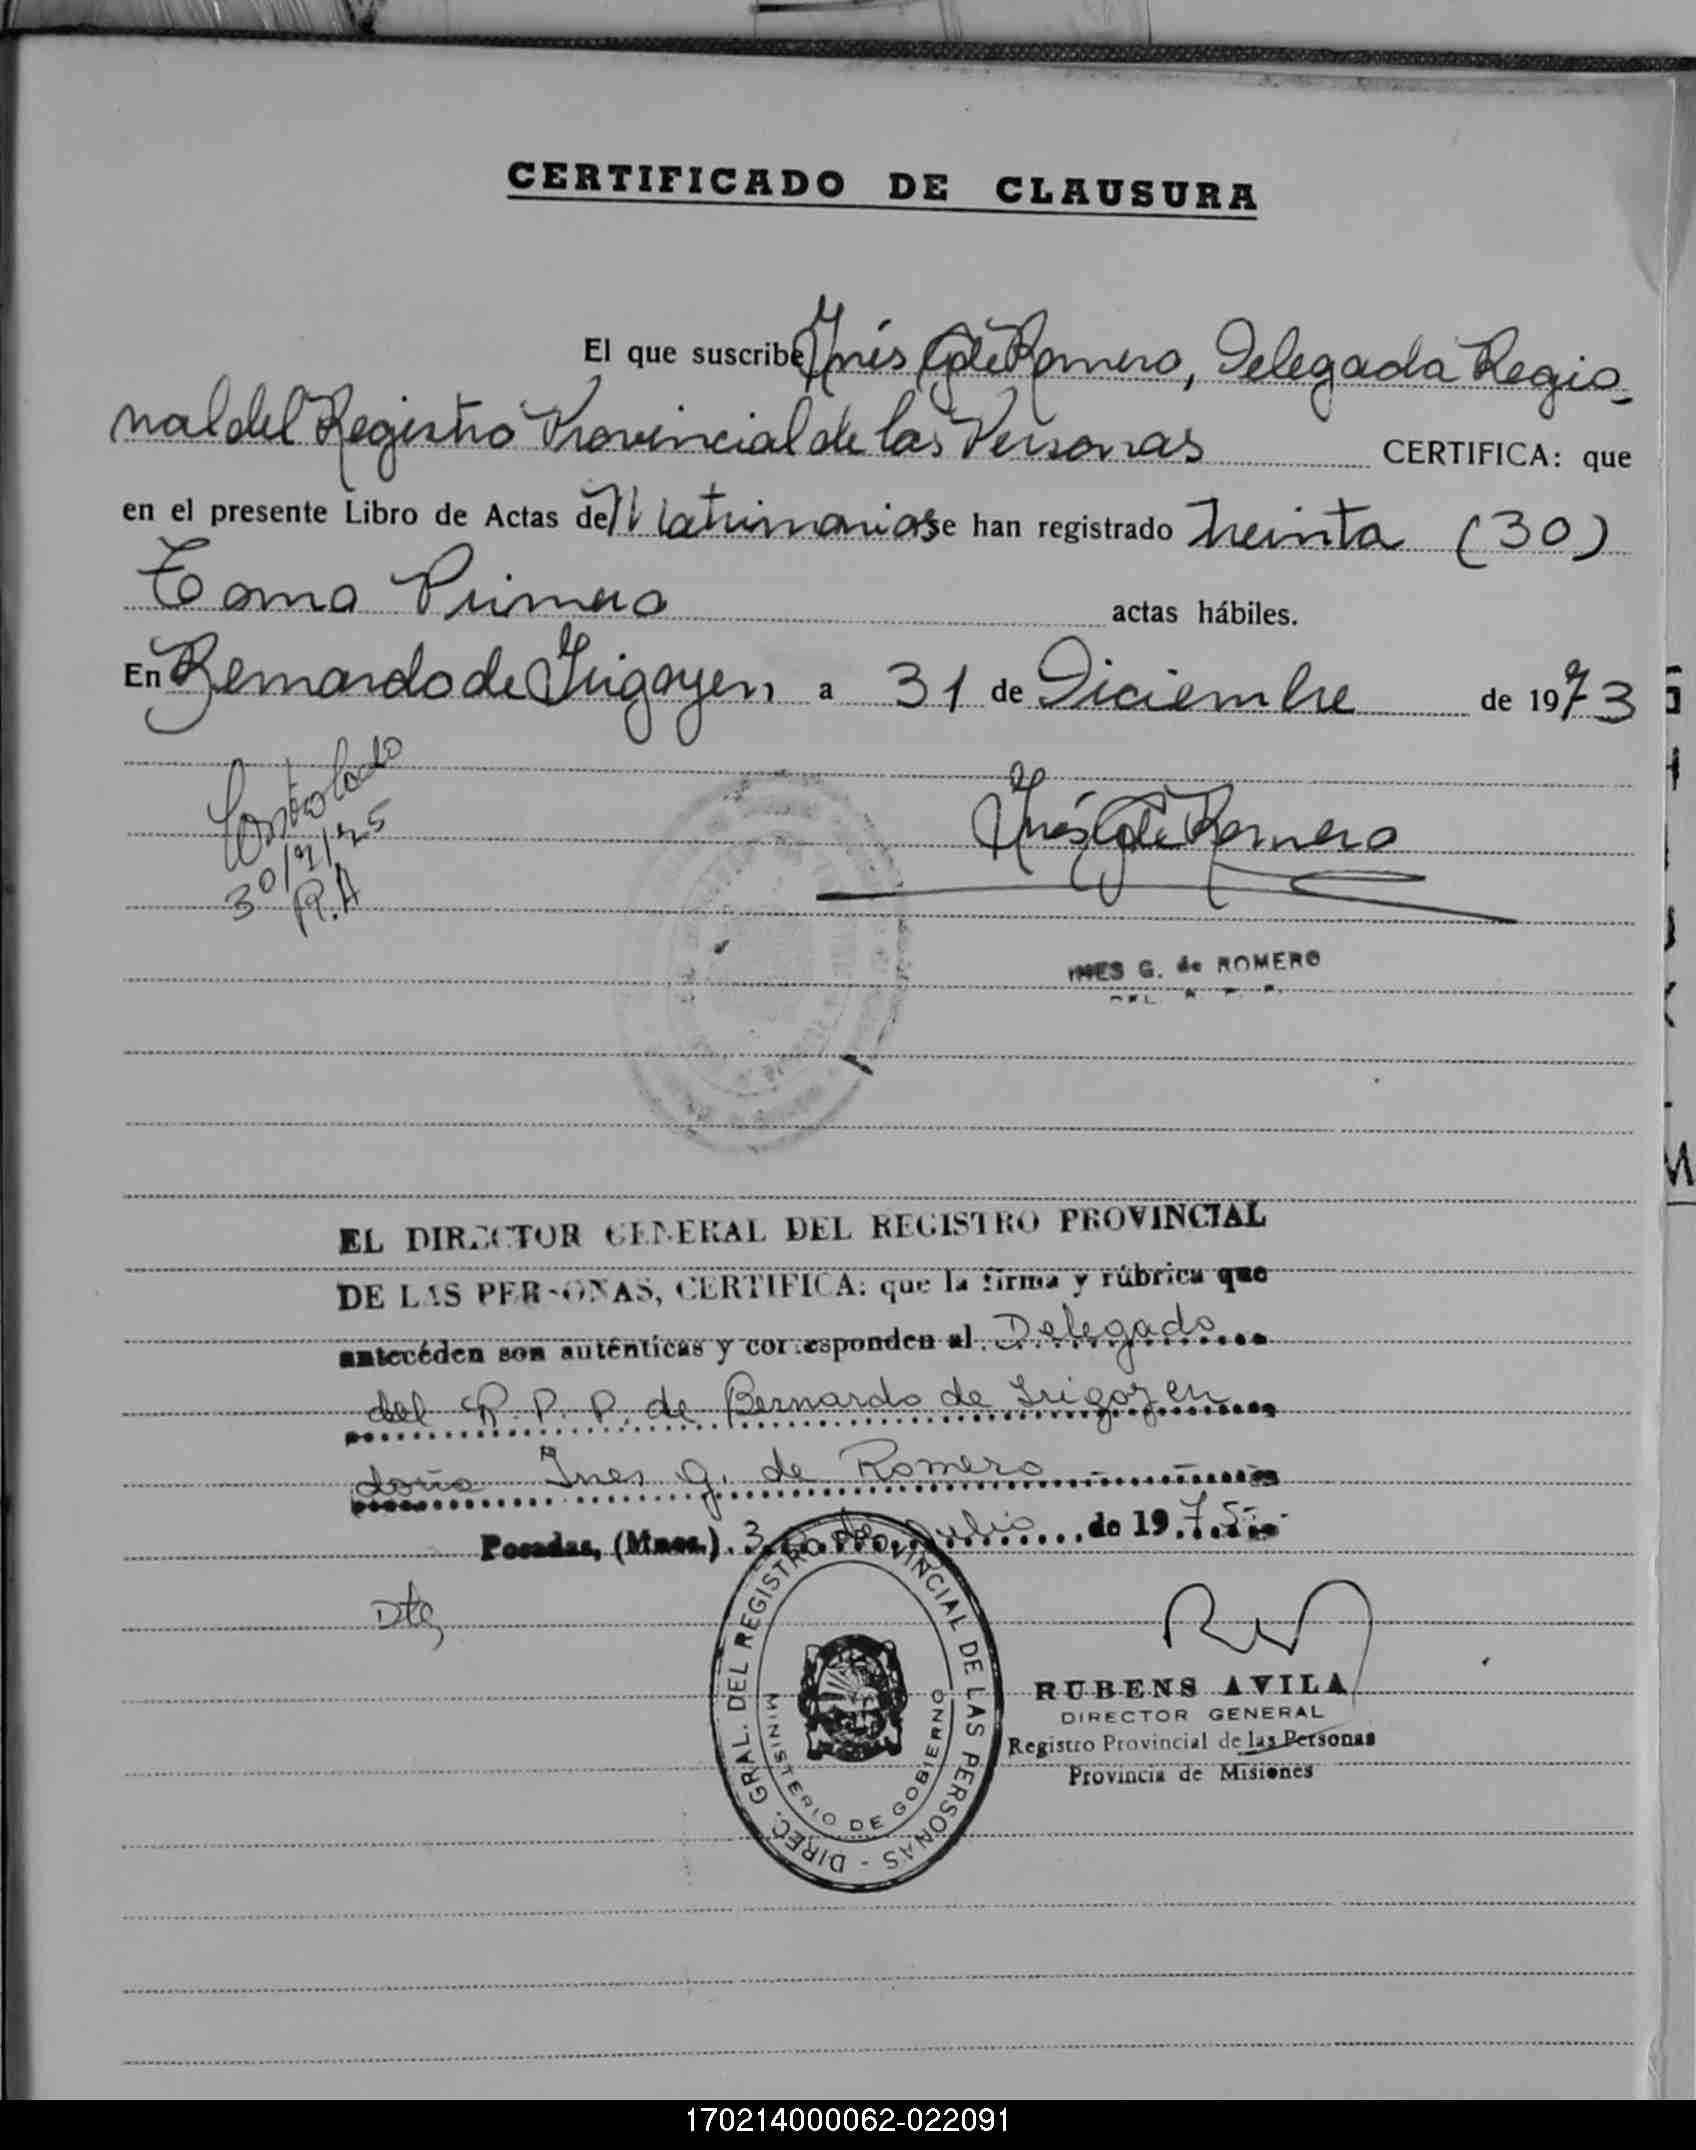 CERTIFICADO DE CLAUSURA
El que suscribe Inés G. de Romero, Delegada Regio-
nal del Registro Provincial de las Personas CERTIFICA: que
en el presente Libro de Actas de Matrimonios se han registrado treinta (30)
Tomo Primero actas hábiles.
En Bernardo de Irigoyen a 31 de Diciembre de 1973
Controlado
30/7/75
R.A
Inés G. de Romero
INES G. de ROMERO
DEL. R. P. P.
EL DIRECTOR GENERAL DEL REGISTRO PROVINCIAL
DE LAS PERSONAS, CERTIFICA: que la firma y rúbrica que
antecéden son auténticas y corresponden al Delegado
del R.P.P. de Bernardo de Irigoyen
doña Ines G. de Romero
Posadas, (Mnes.) 30 de Julio de 1975
DIREC. GRAL. DEL REGISTRO PROVINCIAL DE LAS PERSONAS -
MINISTERIO DE GOBIERNO
RUBENS AVILA
DIRECTOR GENERAL
Registro Provincial de las Personas
Provincia de Misiones
170214000062-022091